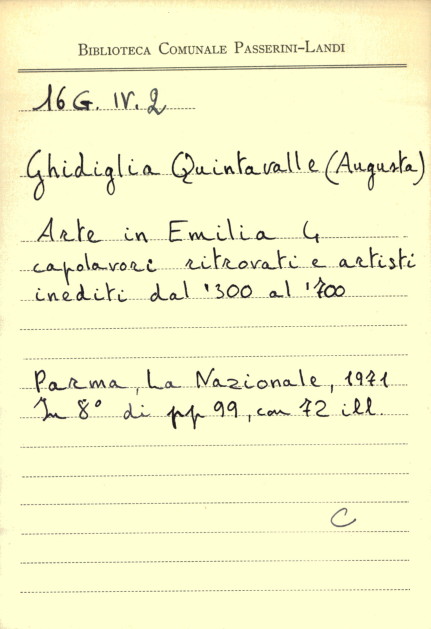 BIBLIOTECA COMUNALE PASSERINI-LANDI
16 G. IV. 2
Ghidiglia Quintavalle (Augusta)
Arte in Emilia 4
capolavori ritrovati e artisti
inediti dal '300 al '700
Parma, La Nazionale, 1971
In 8° di pp 99, con 72 ill.
C